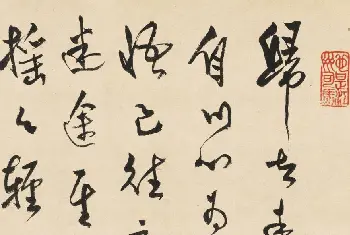 歸去来
自以心為
悟已往
迷途其
搖々輕